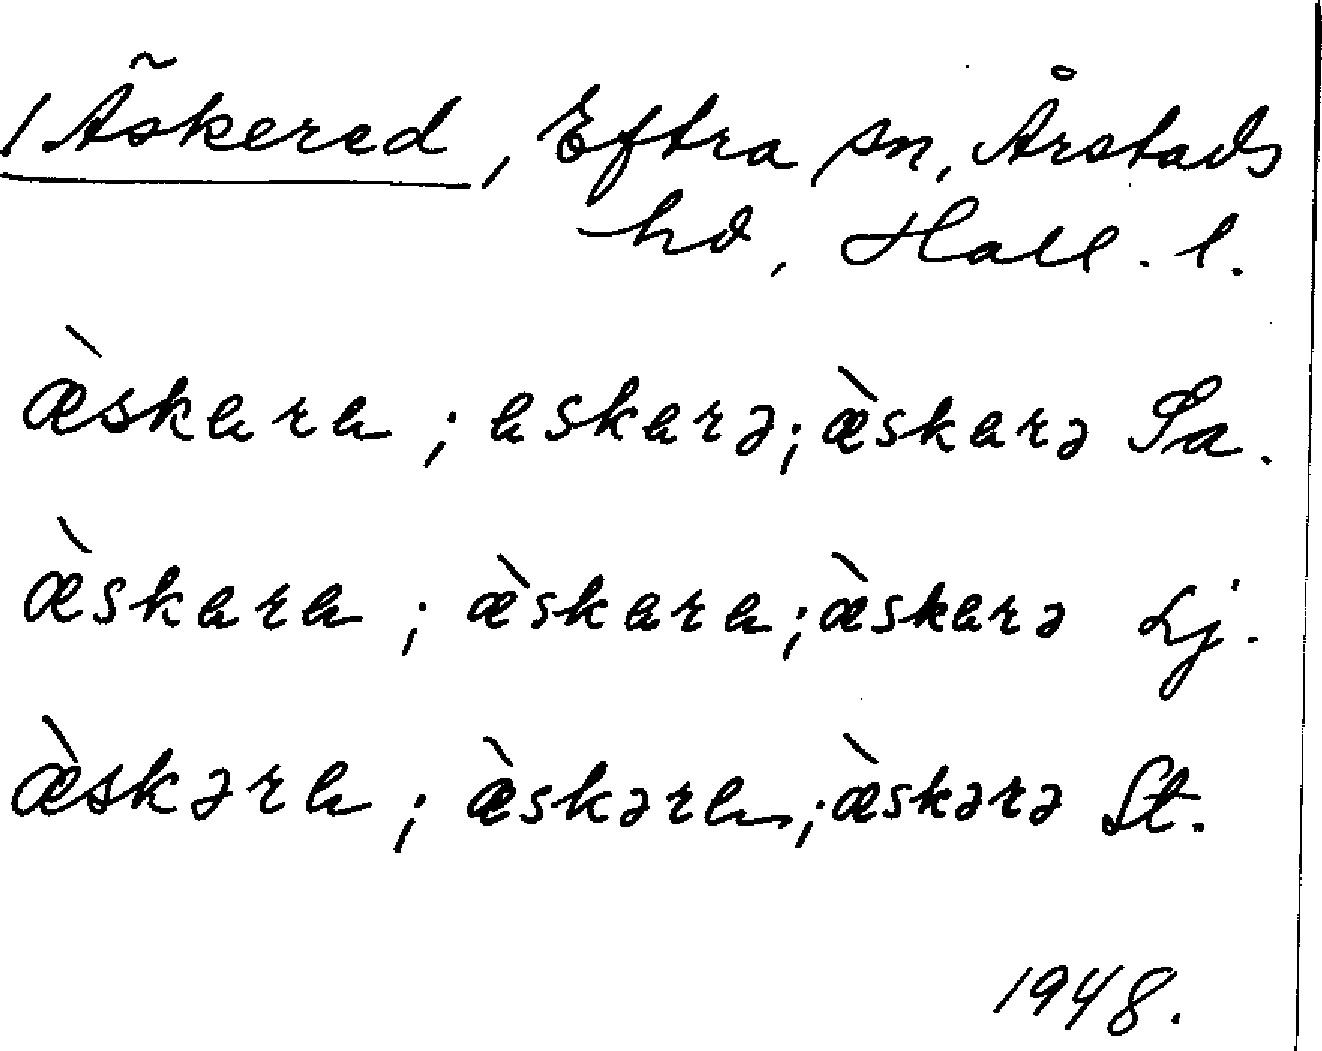 1 Äskered, Eftra sn, Årstads
hd, Hall. l.
æ̀skara ; askarə; æ̀skarə Sa.
æ̀skara ; æ̀skara; æ̀skarə Lj.
æ̀skəra ; æ̀skəra; æ̀skərə St.
1948.